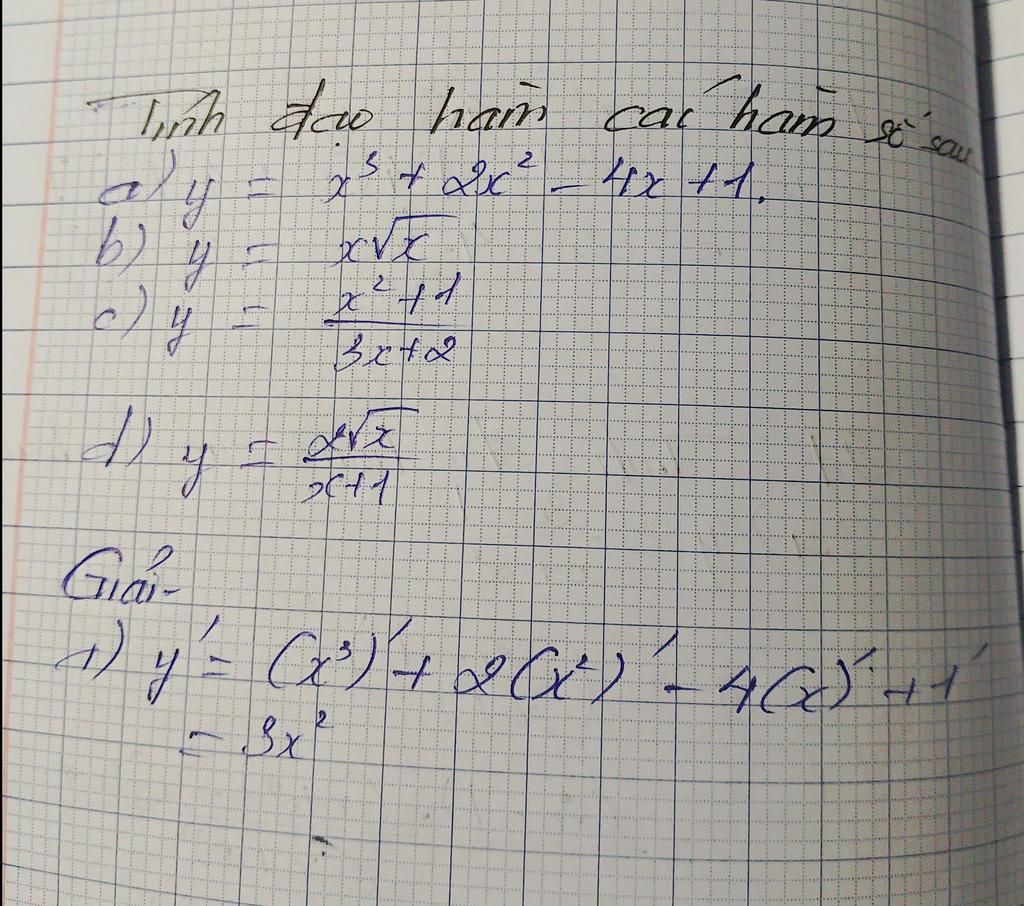 Tính đạo hàm các hàm số sau
a) y = x³ + 2x² - 4x + 1.
b) y = x√x
c) y = (x² + 1)/(3x + 2)
d) y = (2√x)/(x + 1)
Giải-
1) y' = (x³)' + 2(x²)' - 4(x)' + 1'
= 3x²